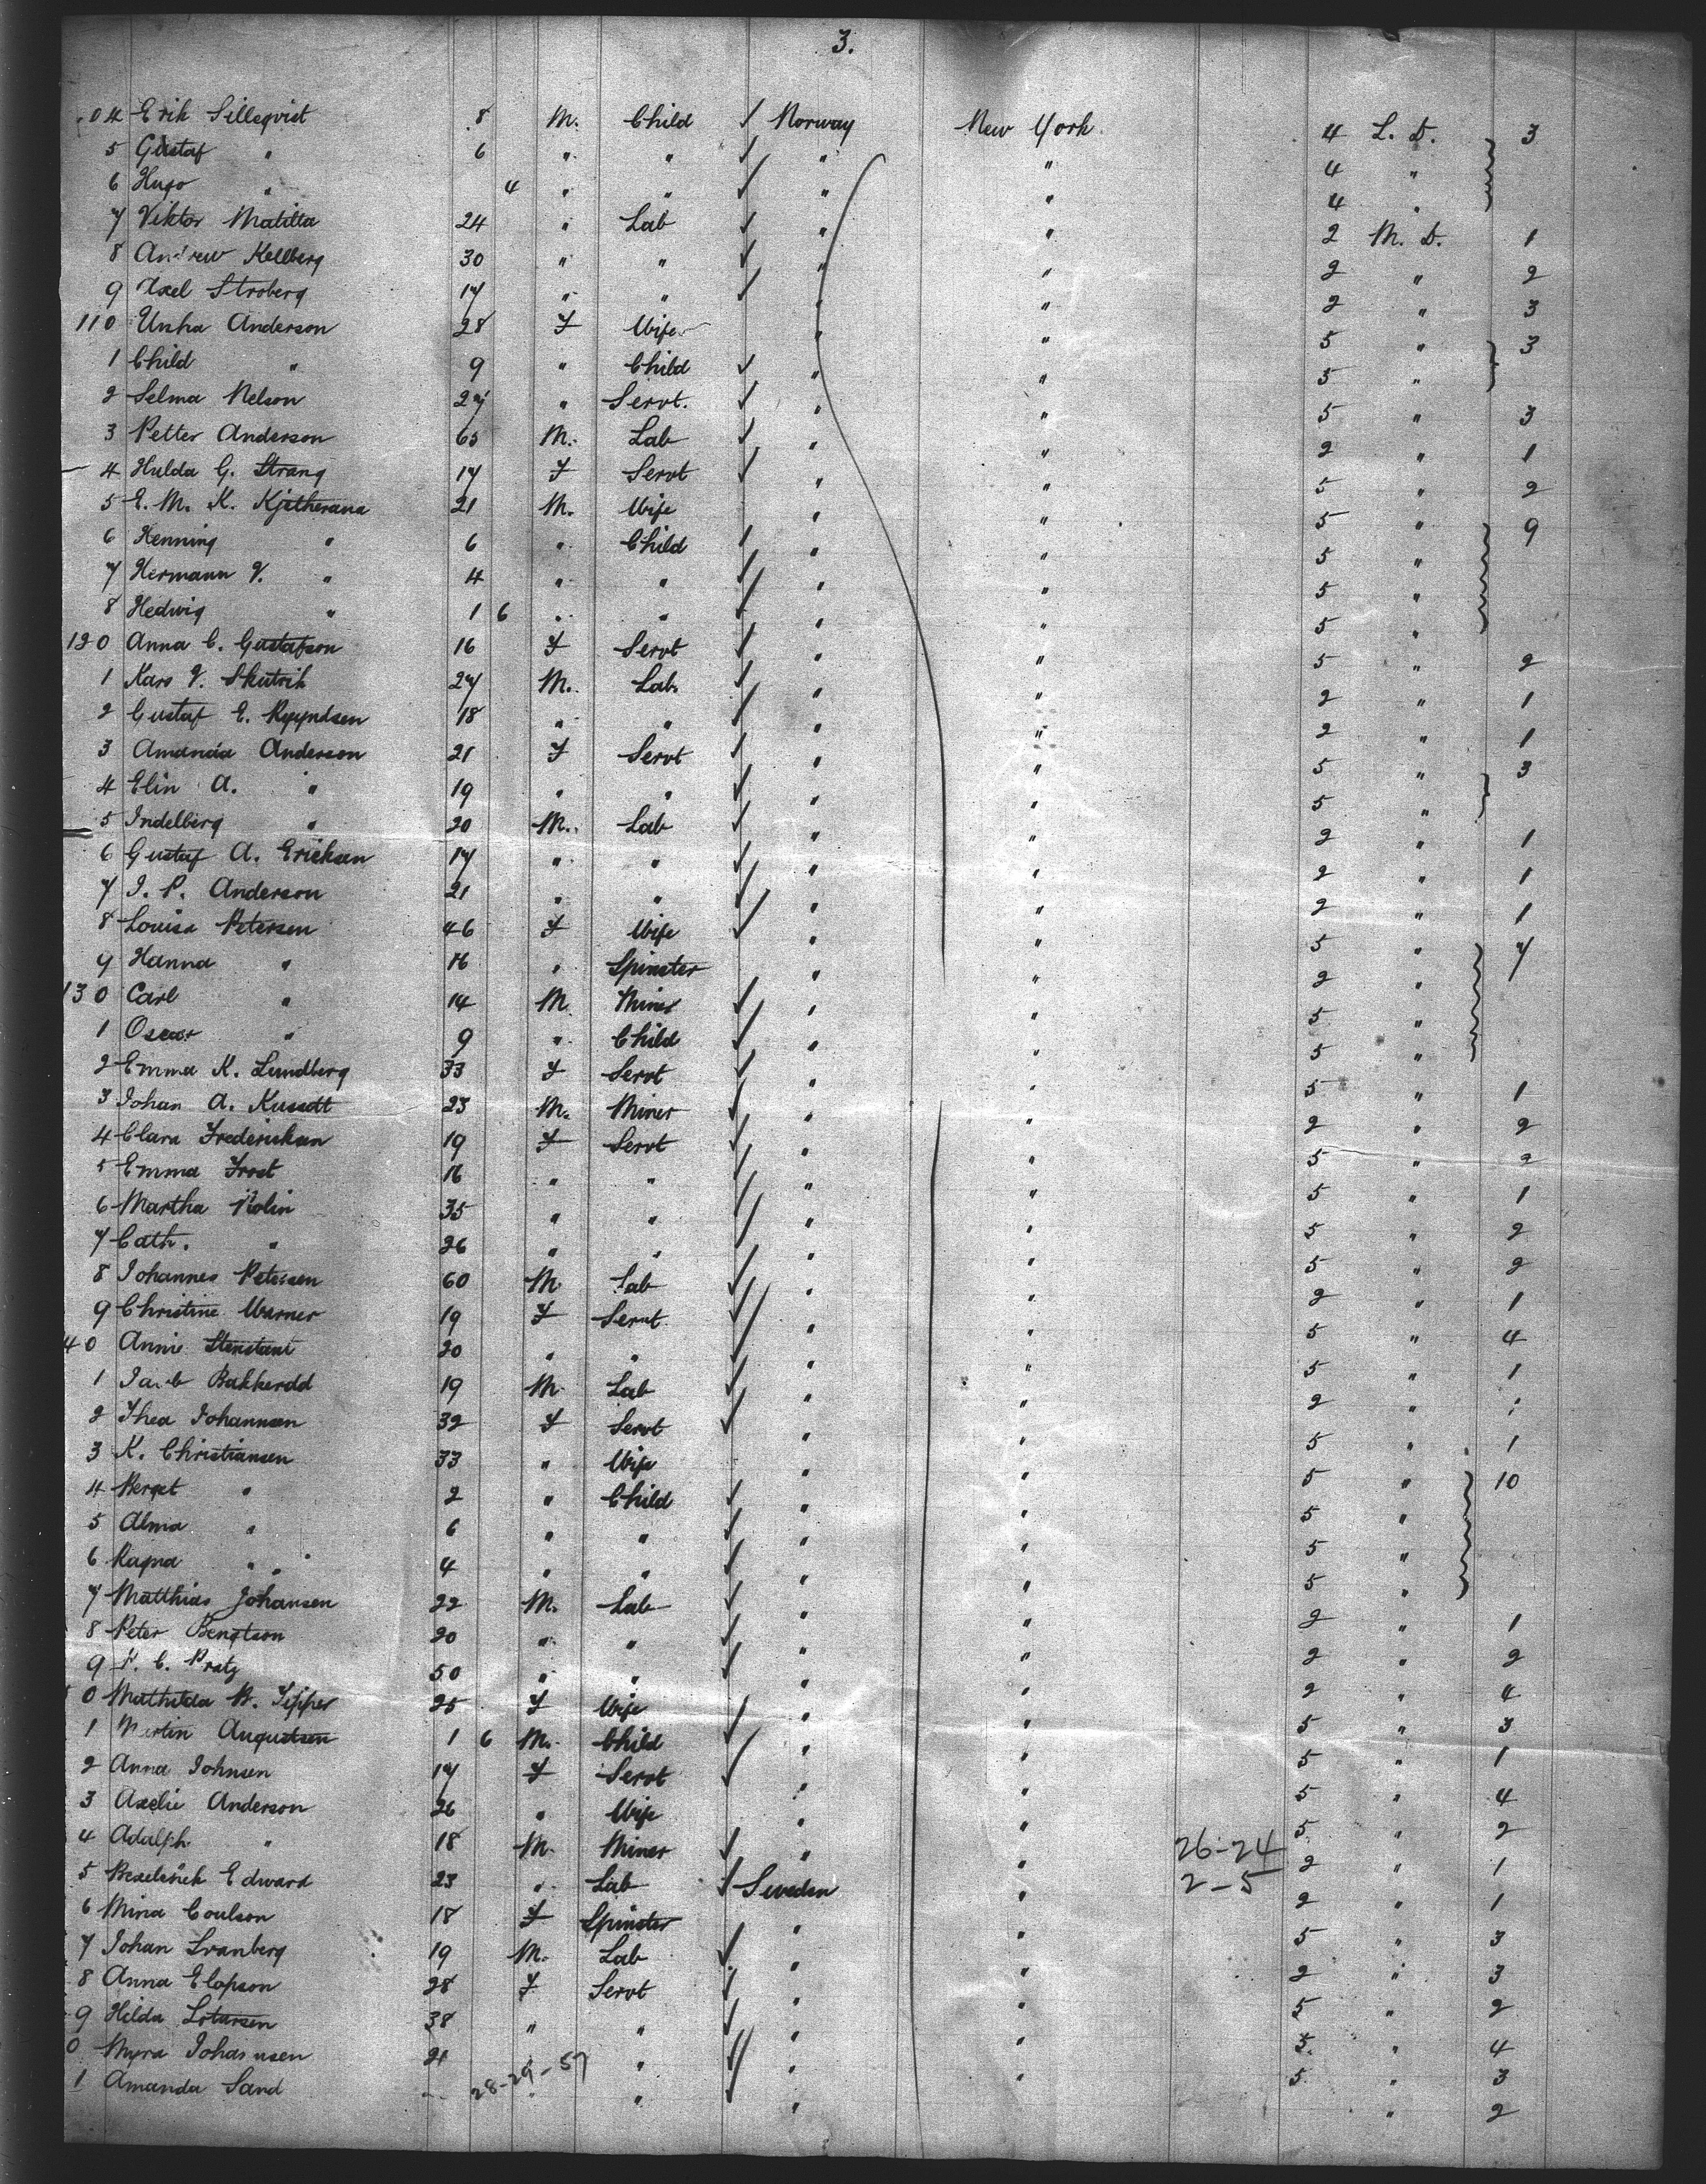 3.
04 Erik Sillegvist 8 M. Child ✓ Norway New York 4 L. D. 3
5 Gustaf " 6 " " ✓ " " 4 "
6 Hugo " 4 " " ✓ " " 4 "
7 Viktor Matilla 24 " Lab ✓ " " 2 M. D. 1
8 Andrew Kellberg 30 " " ✓ " " 2 " 2
9 Axel Stroberg 17 " " ✓ " " 2 " 3
110 Unha Anderson 28 F Wife " " 5 " 3
1 Child " 9 " Child ✓ " " 5 "
2 Selma Nelson 27 " Servt. ✓ " " 5 " 3
3 Petter Anderson 65 M. Lab ✓ " " 2 " 1
4 Hulda G. Strang 17 F Servt ✓ " " 5 " 2
5 E. M. K. Kjetherana 21 M. Wife " " 5 " 9
6 Henning " 6 " Child ✓ " " 5 "
7 Hermann V. " 4 " " ✓ " " 5 "
8 Hedwig " 1 6 " " ✓ " " 5 "
120 Anna C. Gustafson 16 F Servt ✓ " " 5 " 2
1 Kars V. Skutrik 27 M. Lab. ✓ " " 2 " 1
2 Gustaf E. 18 " " ✓ " " 2 " 1
3 Amanda Anderson 21 F Servt ✓ " " 5 " 3
4 Elin A. " 19 " " ✓ " " 5 "
5 Indelberg " 20 M. Lab ✓ " " 2 " 1
6 Gustaf A. Ericksen 17 " " ✓ " " 2 " 1
7 I. P. Anderson 21 " " ✓ " " 2 " 1
8 Louisa Petersen 46 F Wife ✓ " " 5 " 7
9 Hanna " 16 " Spinster " " 2 "
130 Carl " 14 M. Miner ✓ " " 5 "
1 Oscar " 9 " Child ✓ " " 5 "
2 Emma K. Lundberg 33 F Servt ✓ " " 5 " 1
3 Johan A. Kussett 23 M. Miner ✓ " " 2 " 2
4 Clara Fredericksen 19 F Servt ✓ " " 5 " 2
5 Emma Frost 16 " " ✓ " " 5 " 1
6 Martha Nolin 35 " " ✓ " " 5 " 2
7 Cath. " 26 " " ✓ " " 5 " 2
8 Johannes Petersen 60 M Lab ✓ " " 2 " 1
9 Christine Warner 19 F Servt ✓ " " 5 " 4
40 Annie 20 " " ✓ " " 5 " 1
1 Bakkerdd 19 M. Lab ✓ " " 2 "
2 Thea Johannsen 32 F Servt ✓ " " 5 " 1
3 K. Christiansen 33 " Wife " " 5 " 10
4 Berget " 2 " Child ✓ " " 5 "
5 Alma " 6 " " ✓ " " 5 "
6 Ragna " 4 " " ✓ " " 5 "
7 Matthias Johansen 22 M. Lab ✓ " " 2 " 1
8 Peter Bengtson 20 " " ✓ " " 2 " 2
9 P. C. Pratz 50 " " ✓ " " 2 " 4
0 Mathilda B. Tipper 25 F Wife ✓ " " 5 " 3
1 Martin Augustsen 1 6 M. Child ✓ " " 5 " 1
2 Anna Johnsen 17 F Servt ✓ " " 5 " 4
3 Axelie Anderson 26 " Wife " " 5 " 2
4 Adolph " 18 M. Miner ✓ " " 26-24 2 " 1
5 Edward 23 " Lab ✓ Sweden " 2-5 2 " 1
6 Mina Coulson 18 F Spinster " " 5 " 3
7 Johan Lranberg 19 M. Lab ✓ " " 2 " 3
8 Anna Elofson 28 F Servt ✓ " " 5 " 2
9 Hilda 38 " " ✓ " " 5 " 4
0 Myra Johannsen 21 " " ✓ " " 5 " 3
1 Amanda Sand 28-29-57 " ✓ " " 2